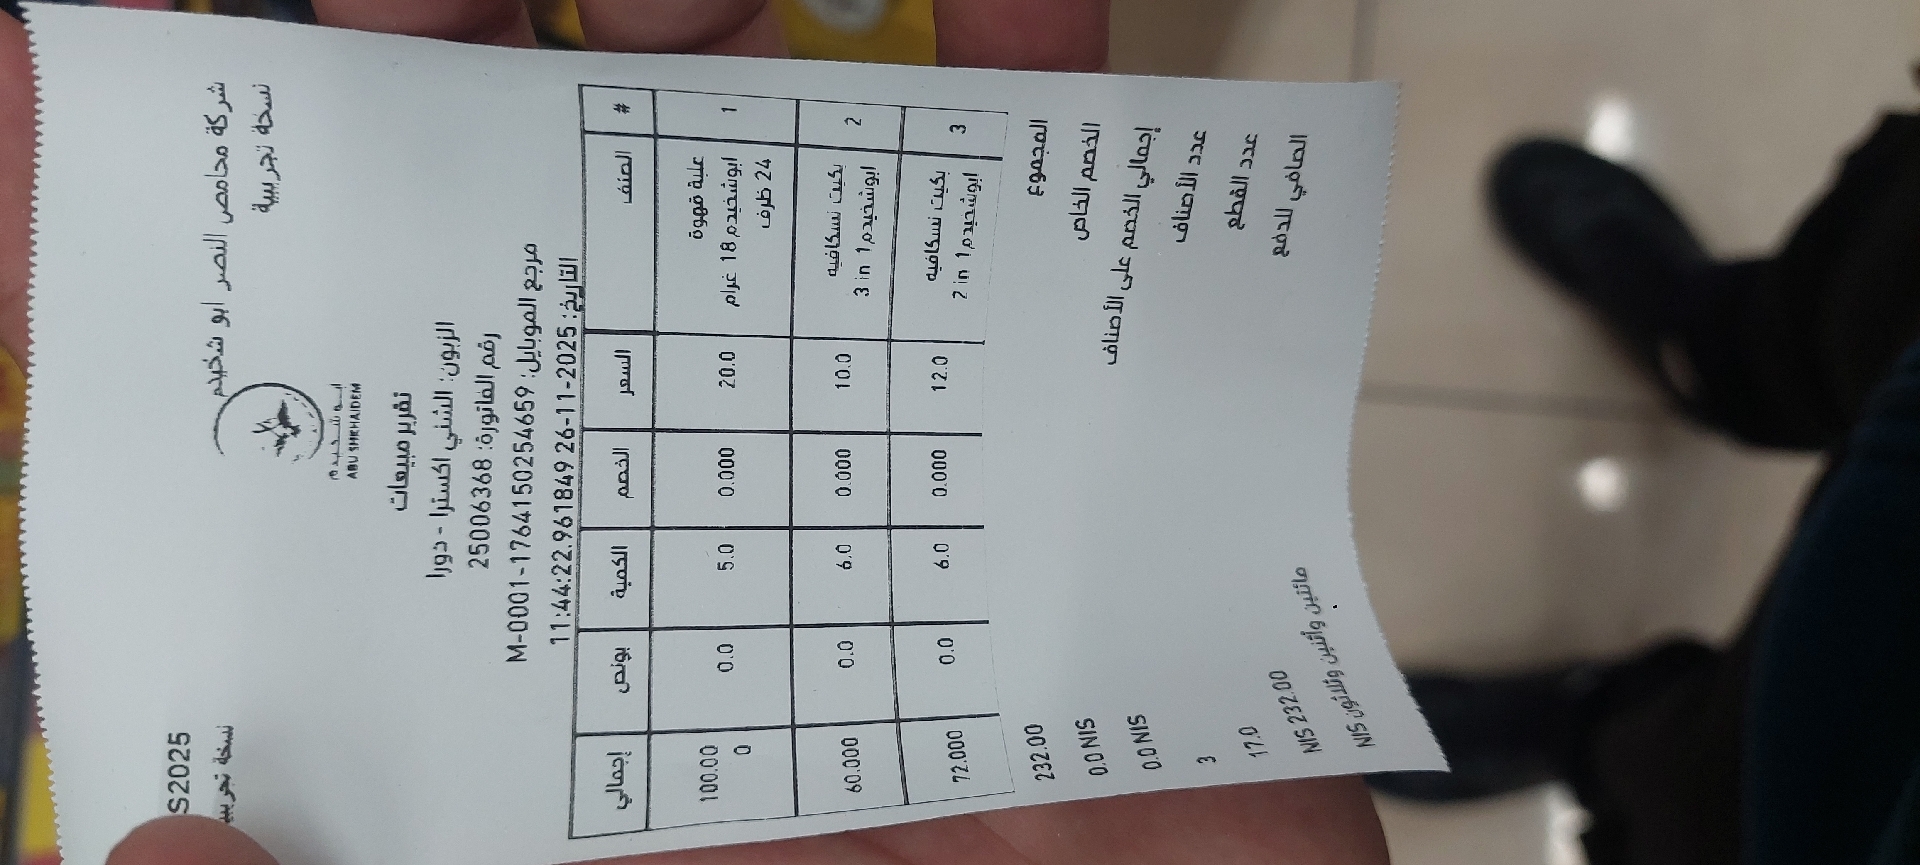 S2025
شركة محامص النصر ابو شخيدم
نسخة تجريبية
نسخة تجريبية
ابو شخيدم
ABU SHKHAIDEM
تقرير مبيعات
الزبون: الشني اكسترا - دورا
رقم الفاتورة: 25006368
مرجع الموبايل: M-0001-1764150254659
التاريخ: 2025-11-26 11:44:22.961849
# الصنف السعر الخصم الكمية بونص إجمالي
1 علبة قهوة ابوشخيدم 18 غرام 24 ظرف 20.0 0.000 5.0 0.0 100.000
2 بكيت نسكافيه ابوشخيدم 3 in 1 10.0 0.000 6.0 0.0 60.000
3 بكيت نسكافيه ابوشخيدم 2 in 1 12.0 0.000 6.0 0.0 72.000
المجموع 232.00
الخصم الخاص 0.0 NIS
إجمالي الخصم على الأصناف 0.0 NIS
عدد الأصناف 3
عدد القطع 17.0
الصافي للدفع NIS 232.00
مائتين وأثنين وثلاثون NIS